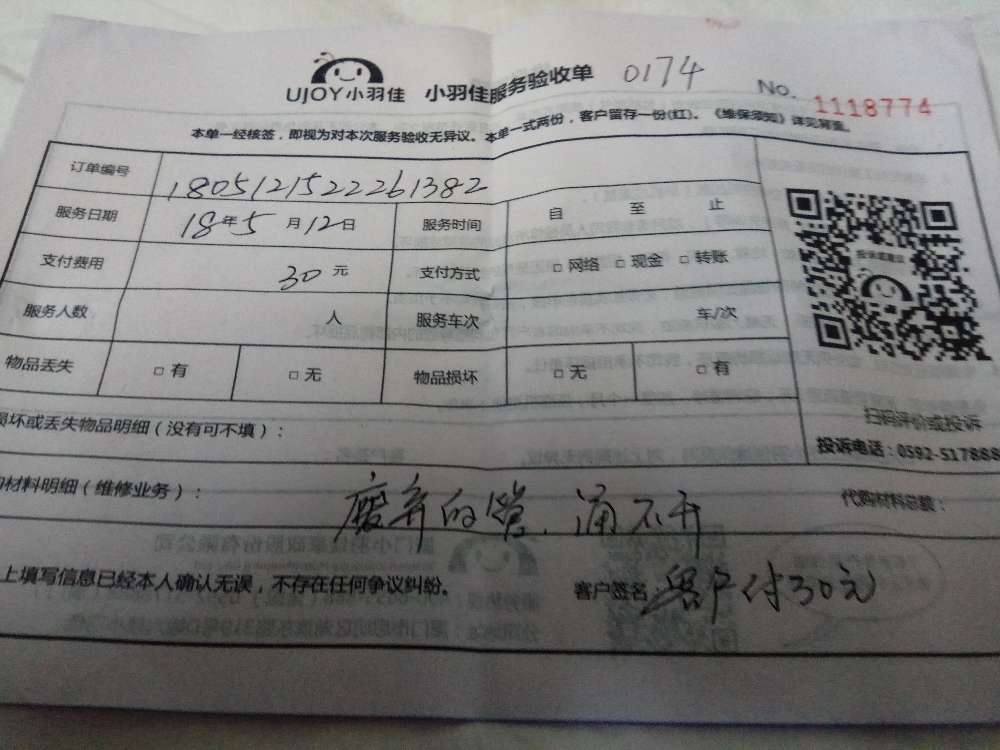 UJOY小羽佳 小羽佳服务验收单 0174 No. 1118774
本单一经核签，即视为对本次服务验收无异议。本单一式两份，客户留存一份(红)。《维保须知》详见背面。
订单编号 1805121522261382
服务日期 18年5月12日 服务时间 自 至 止
支付费用 30元 支付方式 □ 网络 □ 现金 □ 转账
服务人数 人 服务车次 车/次
物品丢失 □ 有 □ 无 物品损坏 □ 无 □ 有
投诉或建议
扫码评价或投诉
投诉电话：0592-517888
损坏或丢失物品明细（没有可不填）：
材料明细（维修业务）： 废弃的管、通不开 代购材料总额：
上填写信息已经本人确认无误，不存在任何争议纠纷。 客户签名: 客户付30元